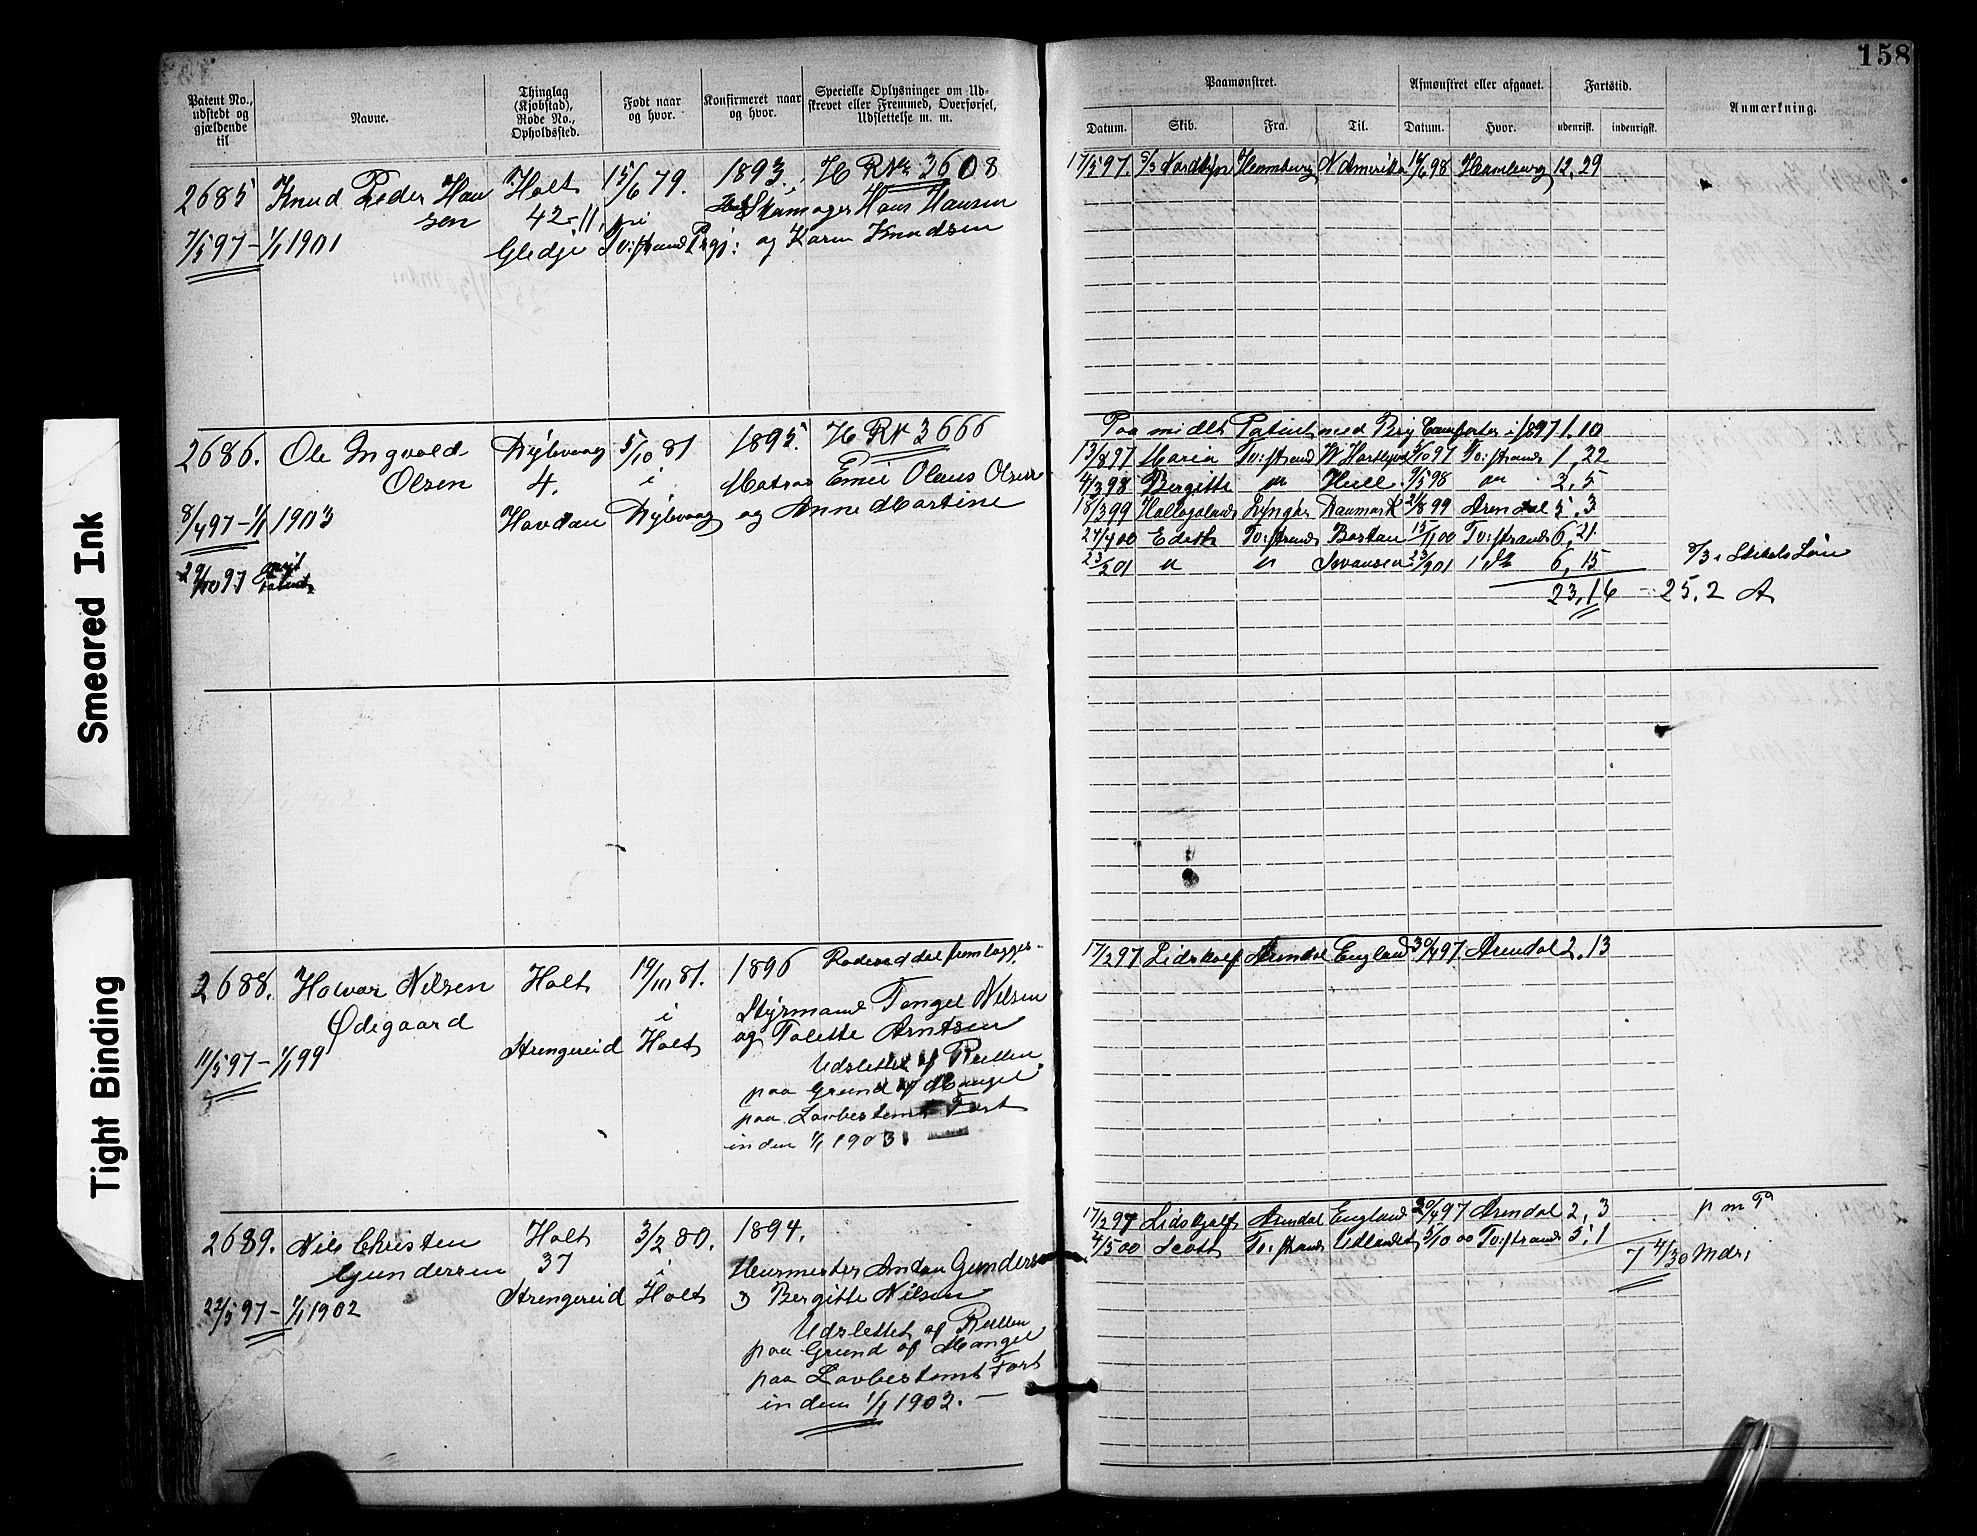 158
Smeared Ink
Tight Binding
Patent No., udstedt og gjældende til
Navne.
Thinglag (Kjøbstad), Rode No., Opholdssted.
Født naar og hvor.
Konfirmeret naar og hvor.
Specielle Oplysninger om Udskrevet eller Fremmed, Overførsel, Udslettelse m. m.
Paamønstret.
Afmønstret eller afgaaet.
Fartstid.
Anmærkning.
Datum. Skib. Fra. Til. Datum. Hvor. udenrigst. indenrigst.
2685 Knud Peder Han Holt 15/6 79. 1893. H RNr 3608
sen 42-11, i Skomager Hans Hansen
7/5 97 - 1/1 1901 Gledje Tv:strand Prgj: og Karen Knudsen
17/5 97. Nordkyn Hamburg N. Amerika 98 Hamburg 12,29
2686. Ole Ingvald Dybvaag 5/10 81 1895. H RN 3666
Olsen 4. i Matros Emil Olaus Olsen
8/4 97 - 1/1 1903 Havdan Dybvaag og Anne Martine
Paa midlt Patent med Brig Comforter i 1897 1,10
13/8 97 Maria Tv:strand W Hartlepool 97 Tv:strand 1,22
4/3 98 Bergitte " Hull 9/5 98 " 2,5
18/3 99 Haalogaland Lyngør Danmark 99 Arendal 5,3
24/4 00 Edith Tv:strand Boston 00 Tv:strand 6,21
23/2 01 " " Svansea 01 6,15
23,16 - 25.2 A
2688. Halvor Nilsen Holt 19/11 81. 1896 Rodeseddel fremlægges.
Ødegaard i Styrmand Tengel Nilsen
11/5 97 - 1/1 99 Strengereid Holt og Tolette Arntsen
Udslettet af Rullen
paa Grund af Mangel
paa Lovbestemt Fart
inden 1/1 1903
17/2 97 Lidskalf Arendal England 30/4 97 Arendal 2,13
2689. Nils Christen Holt 3/2 80. 1894.
Gundersen 37 i Murmester Anton Gunders
22/5 97 - 1/1 1902 Strengereid Holt Bergitte Nilsen
Udslettet af Rullen
paa Grund af Mangel
paa Lovbestemt Fart
inden 1/1 1902. -
17/2 97 Lidskjalf Arendal England 20/4 97 Arendal 2,3 p m P
4/5 00 Scott Tv:strand Udlandet 5/10 00 Tv:strand 5,1
7 4/30 Mdr,